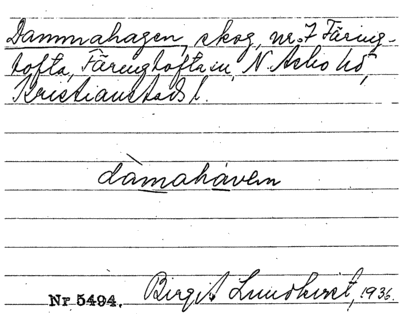 Dammahagen, skog, nr. 7 Färing-
tofta, Färingtofta sn, N. Asbo hd,
Kristianstads l.
dàmahàven
Nr 5494. Birgit Lundkvist, 1936.